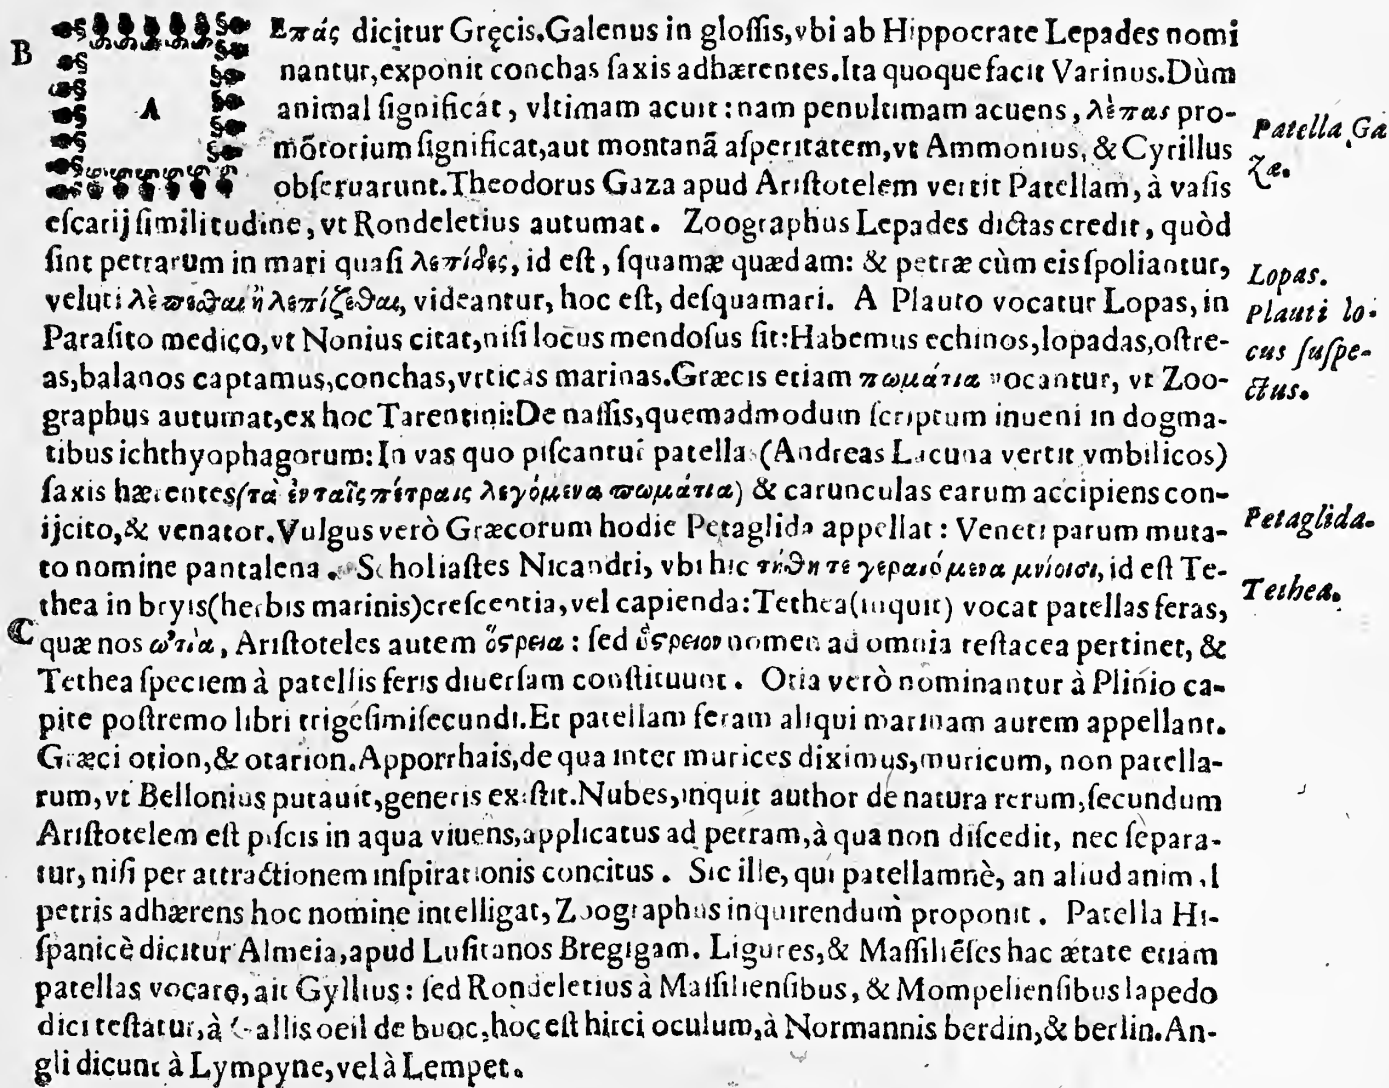 B
A
Επάς dicitur Gręcis.Galenus in gloſſis,vbi ab Hippocrate Lepades nomi
nantur,exponit conchas ſaxis adhærentes.Ita quoque facit Varinus.Dùm
animal ſignificat, vltimam acuit: nam penultimam acuens, λέπας pro-
mõtorium ſignificat,aut montanã aſperitatem,vt Ammonius, & Cyrillus
obſeruarunt.Theodorus Gaza apud Ariſtotelem vertit Patellam, à vaſis
eſcarij ſimilitudine, vt Rondeletius autumat. Zoographus Lepades dictas credit, quòd
ſint petrarum in mari quaſi λεπίδες, id eſt, ſquamæ quædam: & petræ cùm eis ſpoliantur,
veluti λέπεϑαι ἢ λεπίζεϑαι, videantur, hoc eſt, deſquamari. A Plauto vocatur Lopas, in
Paraſito medico,vt Nonius citat,niſi locus mendoſus ſit:Habemus echinos,lopadas,oſtre-
as,balanos captamus,conchas,vrticas marinas.Græcis etiam πωμάτια vocantur, vt Zoo-
graphus autumat,ex hoc Tarentini:De naſſis,quemadmodum ſcriptum inueni in dogma-
tibus ichthyophagorum:In vas quo piſcantur patellas (Andreas Lacuna vertit vmbilicos)
ſaxis hærentes(τὰ ἐν ταῖς πέτραις λεγόμενα πωμάτια) & carunculas earum accipiens con-
ijcito,& venator.Vulgus verò Græcorum hodie Petaglida appellat: Veneti parum muta-
to nomine pantalena. Scholiaſtes Nicandri, vbi hic τήϑη τε γεραιόμενα μνίοισι, id eſt Te-
thea in bryis(herbis marinis)creſcentia,vel capienda:Tethea(inquit) vocat patellas feras,
quæ nos ὠτία, Ariſtoteles autem ὄςρεια: ſed ὄςρειον nomen ad omnia teſtacea pertinet, &
Tethea ſpeciem à patellis feris diuerſam conſtituunt. Otia verò nominantur à Plinio ca-
pite poſtremo libri trigeſimiſecundi.Et patellam feram aliqui marinam aurem appellant.
Græci otion,& otarion.Apporrhais,de qua inter murices diximus,muricum, non patella-
rum,vt Bellonius putauit,generis exiſtit.Nubes,inquit author de natura rerum,ſecundum
Ariſtotelem eſt piſcis in aqua viuens,applicatus ad petram,à qua non diſcedit, nec ſepara-
tur, niſi per attractionem inſpirationis concitus. Sic ille, qui patellamnè, an aliud animal
petris adhærens hoc nomine intelligat, Zoographus inquirendum proponit. Patella Hi-
ſpanicè dicitur Almeia,apud Luſitanos Bregigam. Ligures,& Maſſiliẽſes hac ætate etiam
patellas vocare, ait Gyllius: ſed Rondeletius à Maſſilienſibus, & Mompelienſibus lapedo
dici teſtatur,à Gallis oeil de buoc,hoc eſt hirci oculum,à Normannis berdin,& berlin.An-
gli dicunt à Lympyne,vel à Lempet.
Patella Ga
zæ.
Lopas.
Plauti lo-
cus ſuſpe-
ctus.
Petaglida.
Tethea.
C